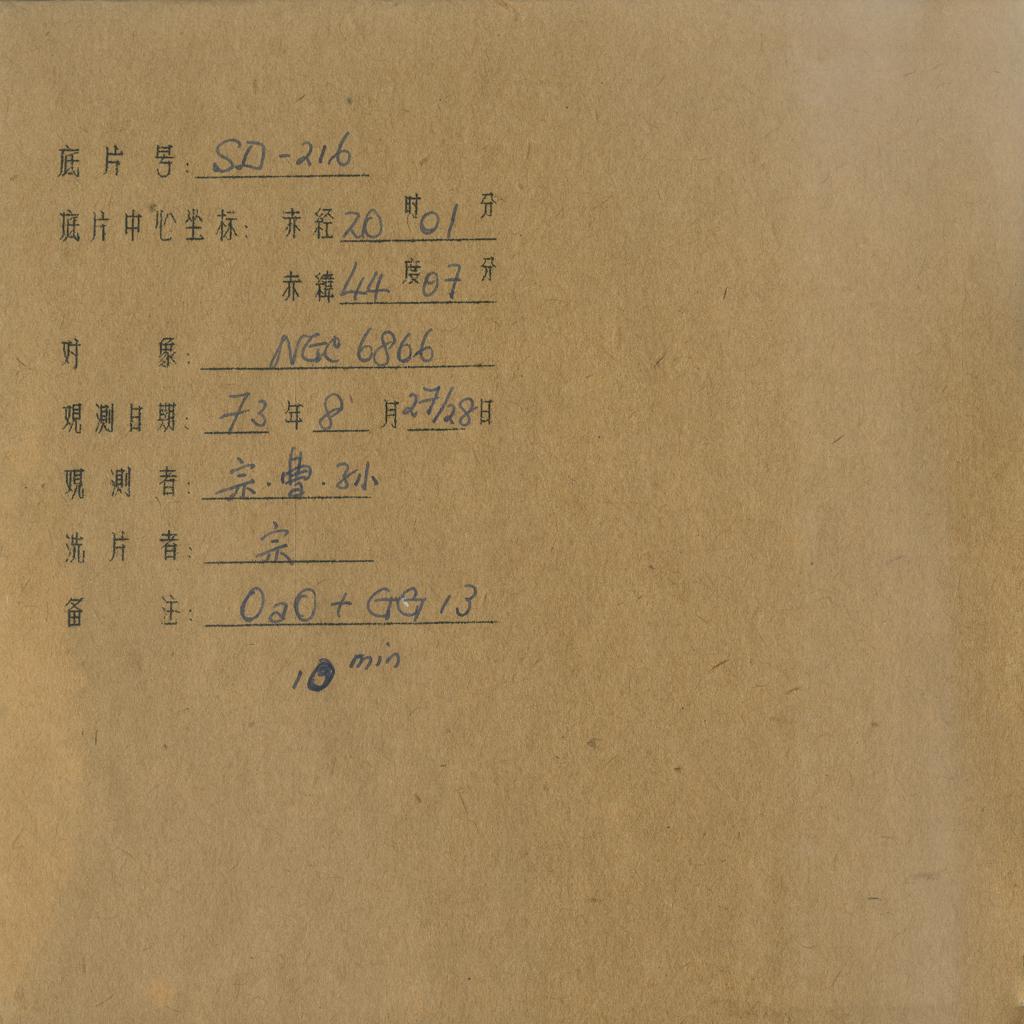 底片号: SD-216
底片中心坐标: 赤经 20 时 01 分
赤緯 44 度 07 分
对象: NGC 6866
观测日期: 73 年 8 月 27/28 日
观测者: 宗·曹·孙
洗片者: 宗
备注: OaO + GG 13
10 min